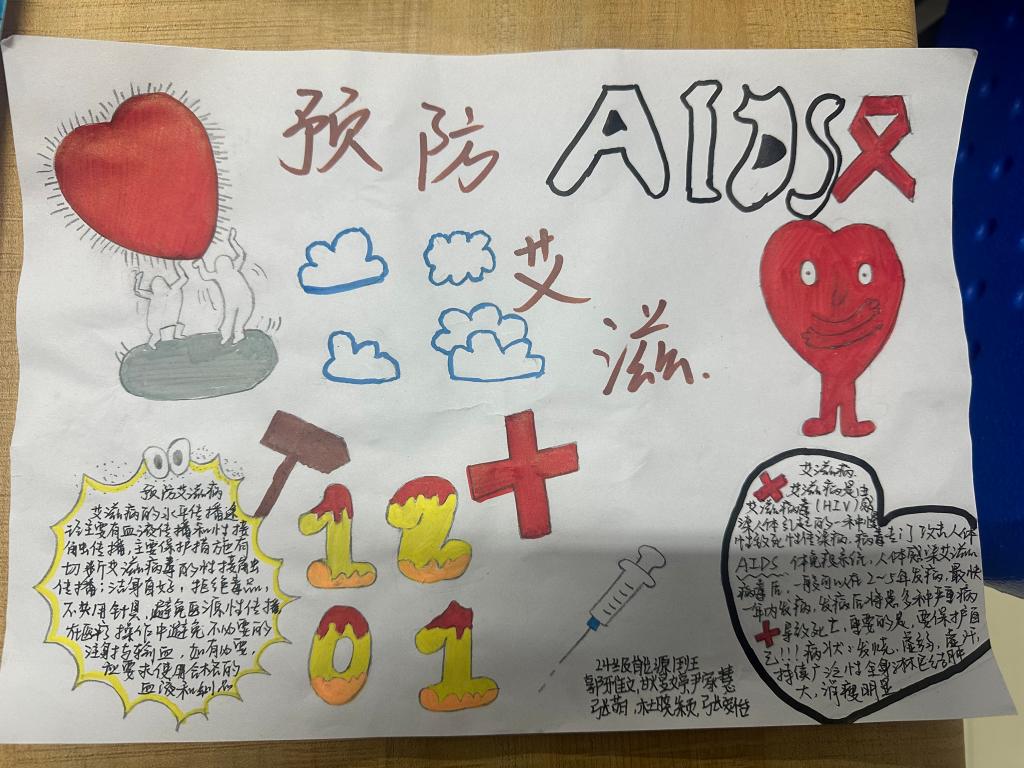 预防 AIDS
艾
滋
预防艾滋病
艾滋病的水平传播途
径主要有血液传播和性接
触传播,主要保护措施有
切断艾滋病毒的性接触
传播:洁身自好,拒绝毒品,
不共用针具,避免医源性传播
在医疗操作中避免不必要的
注射与输血,如有必要,
也要求使用合格的
血液和制品
12
01
艾滋病
艾滋病是由
艾滋病毒(HIV)感
染人体引起的一种慢
性致死性传染病.病毒专门攻击人体
AIDS 体免疫系统,人体感染艾滋
病毒后,一般可以在2~5年发病,最快
一年内发病,发病后将患多种严重病
导致死亡,重要的是,要保护自
己!!!病状:发烧,虚弱,盗汗,
持续广泛性全身淋巴结肿
大,消瘦明显
24级能源班